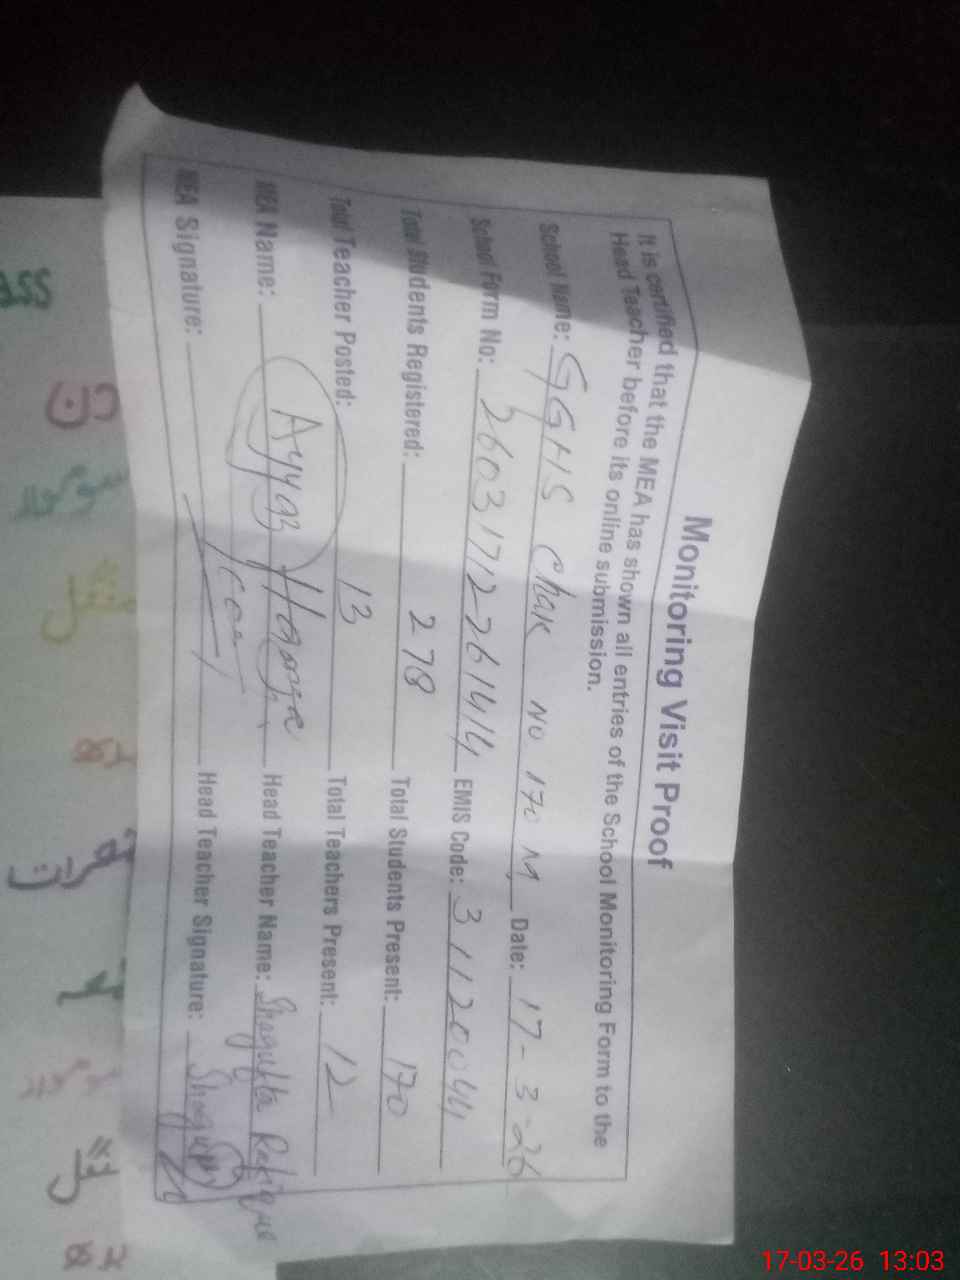 Monitoring Visit Proof
It is certified that the MEA has shown all entries of the School Monitoring Form to the
Head Teacher before its online submission.
School Name: GGHS Chak No 170 M Date: 17-3-26
School Form No: 26031712261414 EMIS Code: 31120044
Total Students Registered: 278 Total Students Present: 170
Total Teacher Posted: 13 Total Teachers Present: 12
MEA Name: Ayyaz Head Teacher Name: Shagufta Rafique
MEA Signature: Head Teacher Signature:
ass
17-03-26 13:03